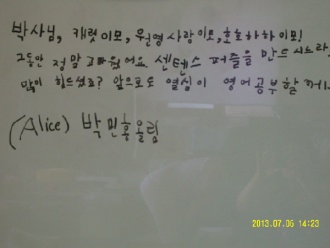 박사님, 캐럿이모, 우원영 사랑이모, 호호하하이모!
그동안 정말 고마웠어요. 센텐스 퍼즐을 만드시느라
많이 힘드셨죠? 앞으로도 열심히 영어공부할게
(Alice) 박민홍올림
2013.07.06 14:23